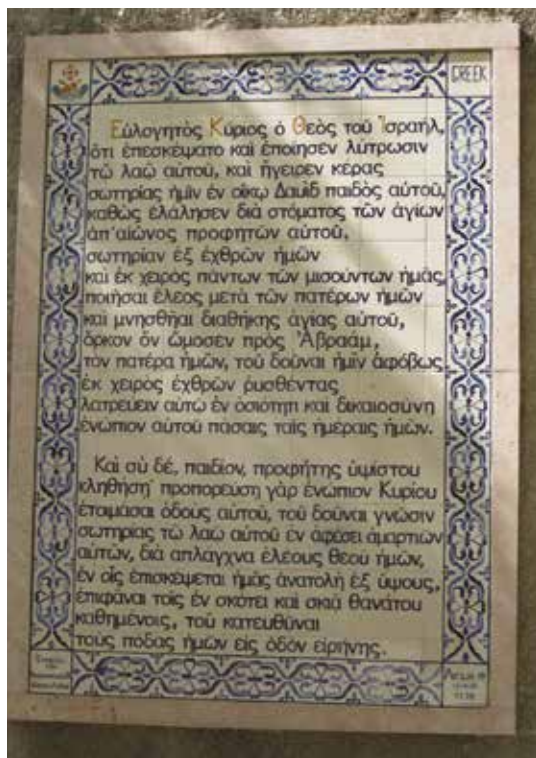 GREEK
Εὐλογητὸς Κύριος ὁ Θεὸς τοῦ Ἰσραήλ,
ὅτι ἐπεσκέψατο καὶ ἐποίησεν λύτρωσιν
τῷ λαῷ αὐτοῦ, καὶ ἤγειρεν κέρας
σωτηρίας ἡμῖν ἐν οἴκῳ Δαυὶδ παιδὸς αὐτοῦ,
καθὼς ἐλάλησεν διὰ στόματος τῶν ἁγίων
ἀπ' αἰῶνος προφητῶν αὐτοῦ,
σωτηρίαν ἐξ ἐχθρῶν ἡμῶν
καὶ ἐκ χειρὸς πάντων τῶν μισούντων ἡμᾶς,
ποιῆσαι ἔλεος μετὰ τῶν πατέρων ἡμῶν
καὶ μνησθῆαι διαθήκης ἁγίας αὐτοῦ,
ὅρκον ὃν ὤμοσεν πρὸς Ἀβραάμ,
τὸν πατέρα ἡμῶν, τοῦ δοῦναι ἡμῖν ἀφόβως
ἐκ χειρὸς ἐχθρῶν ῥυσθέντας
λατρεύειν αὐτῷ ἐν ὁσιότητι καὶ δικαιοσύνῃ
ἐνώπιον αὐτοῦ πάσαις ταῖς ἡμέραις ἡμῶν.
Καὶ σὺ δέ, παιδίον, προφήτης ὑψίστου
κληθήσῃ· προπορεύσῃ γὰρ ἐνώπιον Κυρίου
ἑτοιμάσαι ὁδοὺς αὐτοῦ, τοῦ δοῦναι γνῶσιν
σωτηρίας τῷ λαῷ αὐτοῦ ἐν ἀφέσει ἁμαρτιῶν
αὐτῶν, διὰ σπλάγχνα ἐλέους θεοῦ ἡμῶν,
ἐν οἷς ἐπισκέψεται ἡμᾶς ἀνατολὴ ἐξ ὕψους,
ἐπιφᾶναι τοῖς ἐν σκότει καὶ σκιᾷ θανάτου
καθημένοις, τοῦ κατευθῦναι
τοὺς πόδας ἡμῶν εἰς ὁδὸν εἰρήνης.